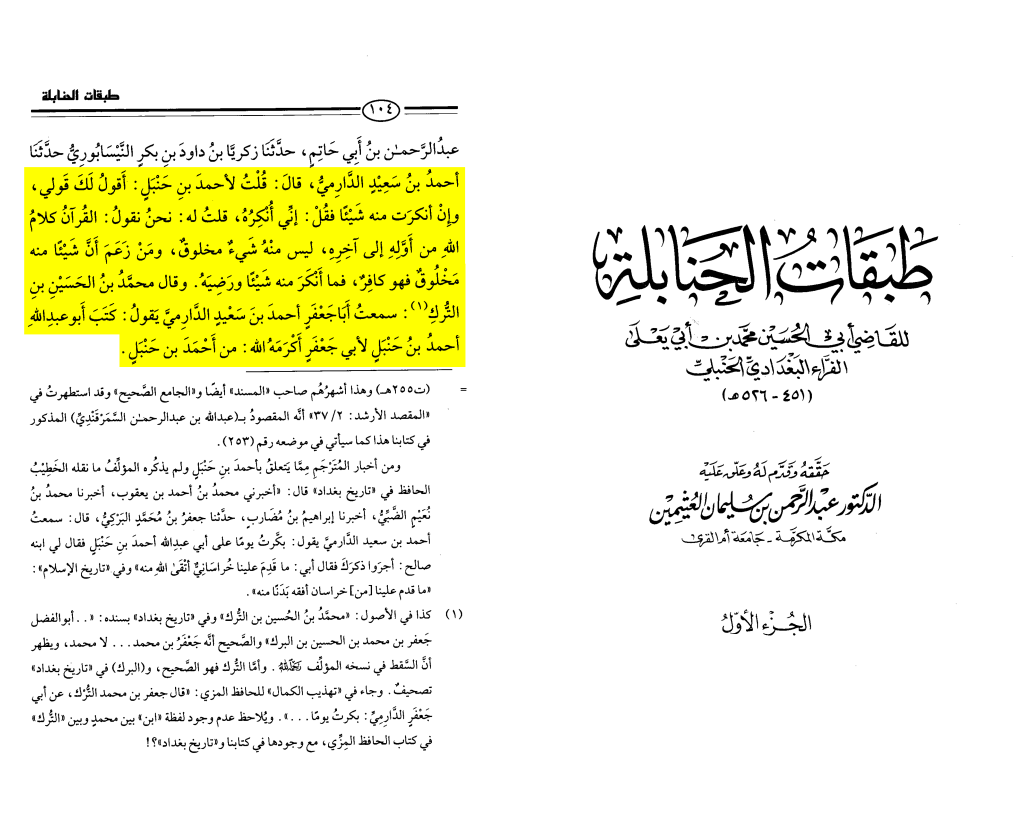 طبقات الحنابلة
١٠٤
عبدُالرَّحمـٰن بنُ أَبي حَاتِمٍ، حدَّثَنَا زكريَّا بنُ داودَ بنِ بكرٍ النَّيْسَابُوريُّ حدَّثَنَا
أحمدُ بنُ سَعِيْدٍ الدَّارِميُّ، قالَ: قُلْتُ لأحمدَ بنِ حَنْبَلٍ: أَقولُ لكَ قَولي،
وإنْ أنكرت منه شَيْئًا فقُلْ: إنِّي أُنْكِرُهُ، قلتُ له: نحنُ نقولُ: القُرآنُ كلامُ
اللهِ من أَوَّلِهِ إلى آخِرِهِ، ليس منْهُ شَيءٌ مخلوقٌ، ومَنْ زَعَمَ أَنَّ شَيْئًا منه
مَخْلُوقٌ فهو كافِرٌ، فما أَنْكَرَ منه شَيْئًا ورَضِيَهُ. وقال محمَّدُ بنُ الحَسَيْنِ بنِ
التُّركِ(١): سمعتُ أَبَاجَعْفَرٍ أحمدَ بنَ سَعِيدٍ الدَّارِميَّ يَقولُ: كَتَبَ أَبوعبدِاللهِ
أحمدُ بنُ حَنْبَلٍ لأبي جَعْفَرٍ أَكْرَمَهُ الله: من أَحْمَدَ بنِ حَنْبَلٍ.
= (ت٢٥٥هـ) وهذا أشهرُهُم صاحب «المسند» أيضًا و«الجامع الصَّحيح» وقد استطهرتُ في
«المقصد الأرشد: ٣٧/٢» أنَّه المقصودُ بـ(عبدالله بن عبدالرحمـٰن السَّمَرْقَنْدِيِّ) المذكور
في كتابنا هذا كما سيأتي في موضعه رقم (٢٥٣).
ومن أخبار المُتَرْجَمِ مِمَّا يَتعلقُ بأحمدَ بنِ حَنْبَلٍ ولم يذكُره المؤلِّفُ ما نقله الخَطِيْبُ
الحافظ في «تاريخ بغداد» قال: «أخبرني محمدُ بنُ أحمد بن يعقوب، أخبرنا محمدُ بنُ
نُعَيْمٍ الضَّبِّيُّ، أخبرنا إبراهيمُ بنُ مُضَاربٍ، حدَّثنا جعفرُ بنُ مُحَمَّدٍ البَرَكِيُّ، قال: سمعتُ
أحمد بن سعيد الدَّارميَّ يقول: بكَّرتُ يومًا على أبي عبدِالله أحمدَ بن حَنْبَلٍ فقال لي ابنه
صالح: أجرَوا ذكرَكَ فقال أبي: ما قَدِمَ علينا خُراسَانيٌّ أَتْقَىٰ اللهِ منه» وفي «تاريخ الإسلام»:
«ما قدم علينا [من] خراسان أفقه بَدَنًا منه».
(١) كذا في الأصول: «محمَّدُ بنُ الحُسين بن التُّرك» وفي «تاريخ بغداد» بسنده: «.. أبوالفضل
جَعفر بن محمد بن الحسين بن البرك» والصَّحيح أنَّه جَعْفَرُ بن محمد... لا محمد، ويظهر
أنَّ السَّقط في نسخه المؤلِّف رَحِمَهُ اللهُ. وأمَّا التُّرك فهو الصَّحيح، و(البرك) في «تاريخ بغداد»
تصحيفٌ. وجاء في «تهذيب الكمال» للحافظ المزي: «قال جعفر بن محمد التُّرْك، عن أبي
جَعْفَرٍ الدَّارِميِّ: بكرتُ يومًا...». ويُلاحظ عدم وجود لفظة «ابن» بين محمدٍ وبين «التُّرك»
في كتاب الحافظ المِزِّي، مع وجودها في كتابنا و«تاريخ بغداد»؟!
طَبَقَاتُ الحَنَابِلَةِ
للقَاضِي أَبي الحُسَين محمّد بن أبي يَعْلَى
الفَرَّاء البَغْدَادِيّ الحَنْبَلِيّ
(٤٥١ - ٥٢٦ هـ)
حَقَّقَهُ وَقَدَّم لَهُ وَعَلَّق عَلَيْهِ
الدكتور عَبْد الرَّحْمن بن سُلَيمَان العُثَيْمِين
مكة المكرّمة - جامعة أم القرى
الجُزء الأوّلُ